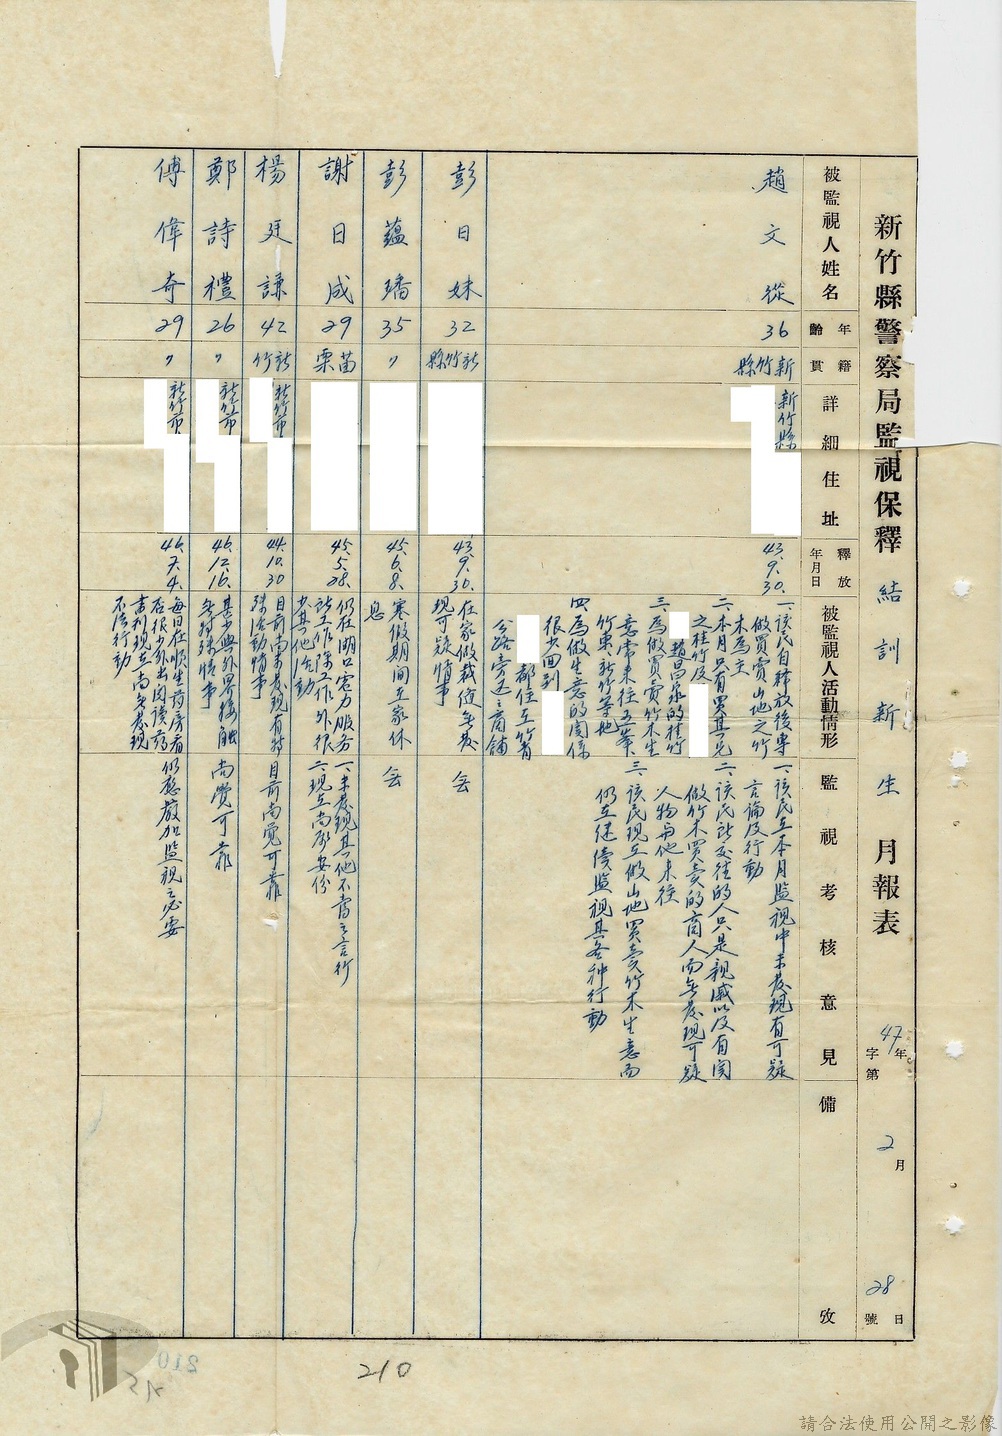 新竹縣警察局監視保釋結訓新生月報表
47年2月28日
字第 號
被監視人姓名
年齡
籍貫
詳細住址
釋放年月日
被監視人活動情形
監視考核意見
備攷
趙文從
36
新竹縣
新竹縣
43.9.30.
一、該民自釋放後專
做買賣山地之竹
木為主
二、本月只有買其兄
之桂竹及
趙昌承的桂竹
三、為做買賣竹木生
意常來往五峯、
竹東、新竹等地
四、為做生意的関係
很少回到
都住在竹東
公路旁之商舖
一、該民在本月監視中未發現有可疑
言論及行動
二、該民所交往的人只是親戚以及有関
做竹木買賣的商人而無發現可疑
人物与他來往
三、該民現在做山地買賣竹木生意而
仍在继續監視其各种行動
彭日妹
32
新竹縣
43.9.30.
在家做裁縫無發
現可疑情事
仝
彭蘊璠
35
〃
45.6.8.
寒假期间在家休
息
仝
謝日成
29
苗栗
45.5.28.
仍在湖口宏力服务
站工作除工作外很
少其他活動
一、未發現其他不當之言行
二、現在尚称安份
楊廷謙
42
新竹
新竹市
44.10.30
目前尚未發現有特
殊活動情事
目前尚覺可靠
鄭詩禮
26
〃
新竹市
46.12.16.
甚少與外界接触
無特殊情事
尚覺可靠
傅偉奇
29
〃
新竹市
46.7.4.
每日在順生药房看
店很少外出阅读药
書刊現在尚無發現
不法行動
仍應嚴加監視之必要
210
請合法使用公開之影像